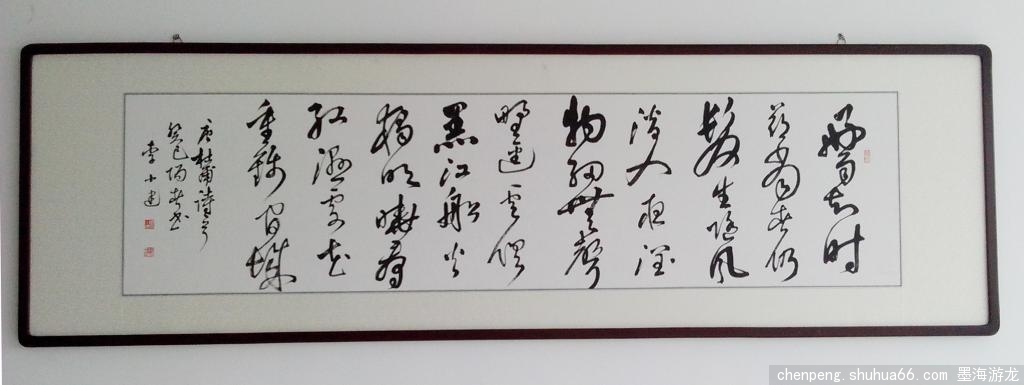 好雨知时
節當春乃
發生随风
潜入夜润
物细無聲
野径云俱
黑江船火
獨明曉看
红湿處花
重錦官城
唐杜甫诗
癸巳阳春书
李
chenpeng.shuhua66.com 墨海游龙